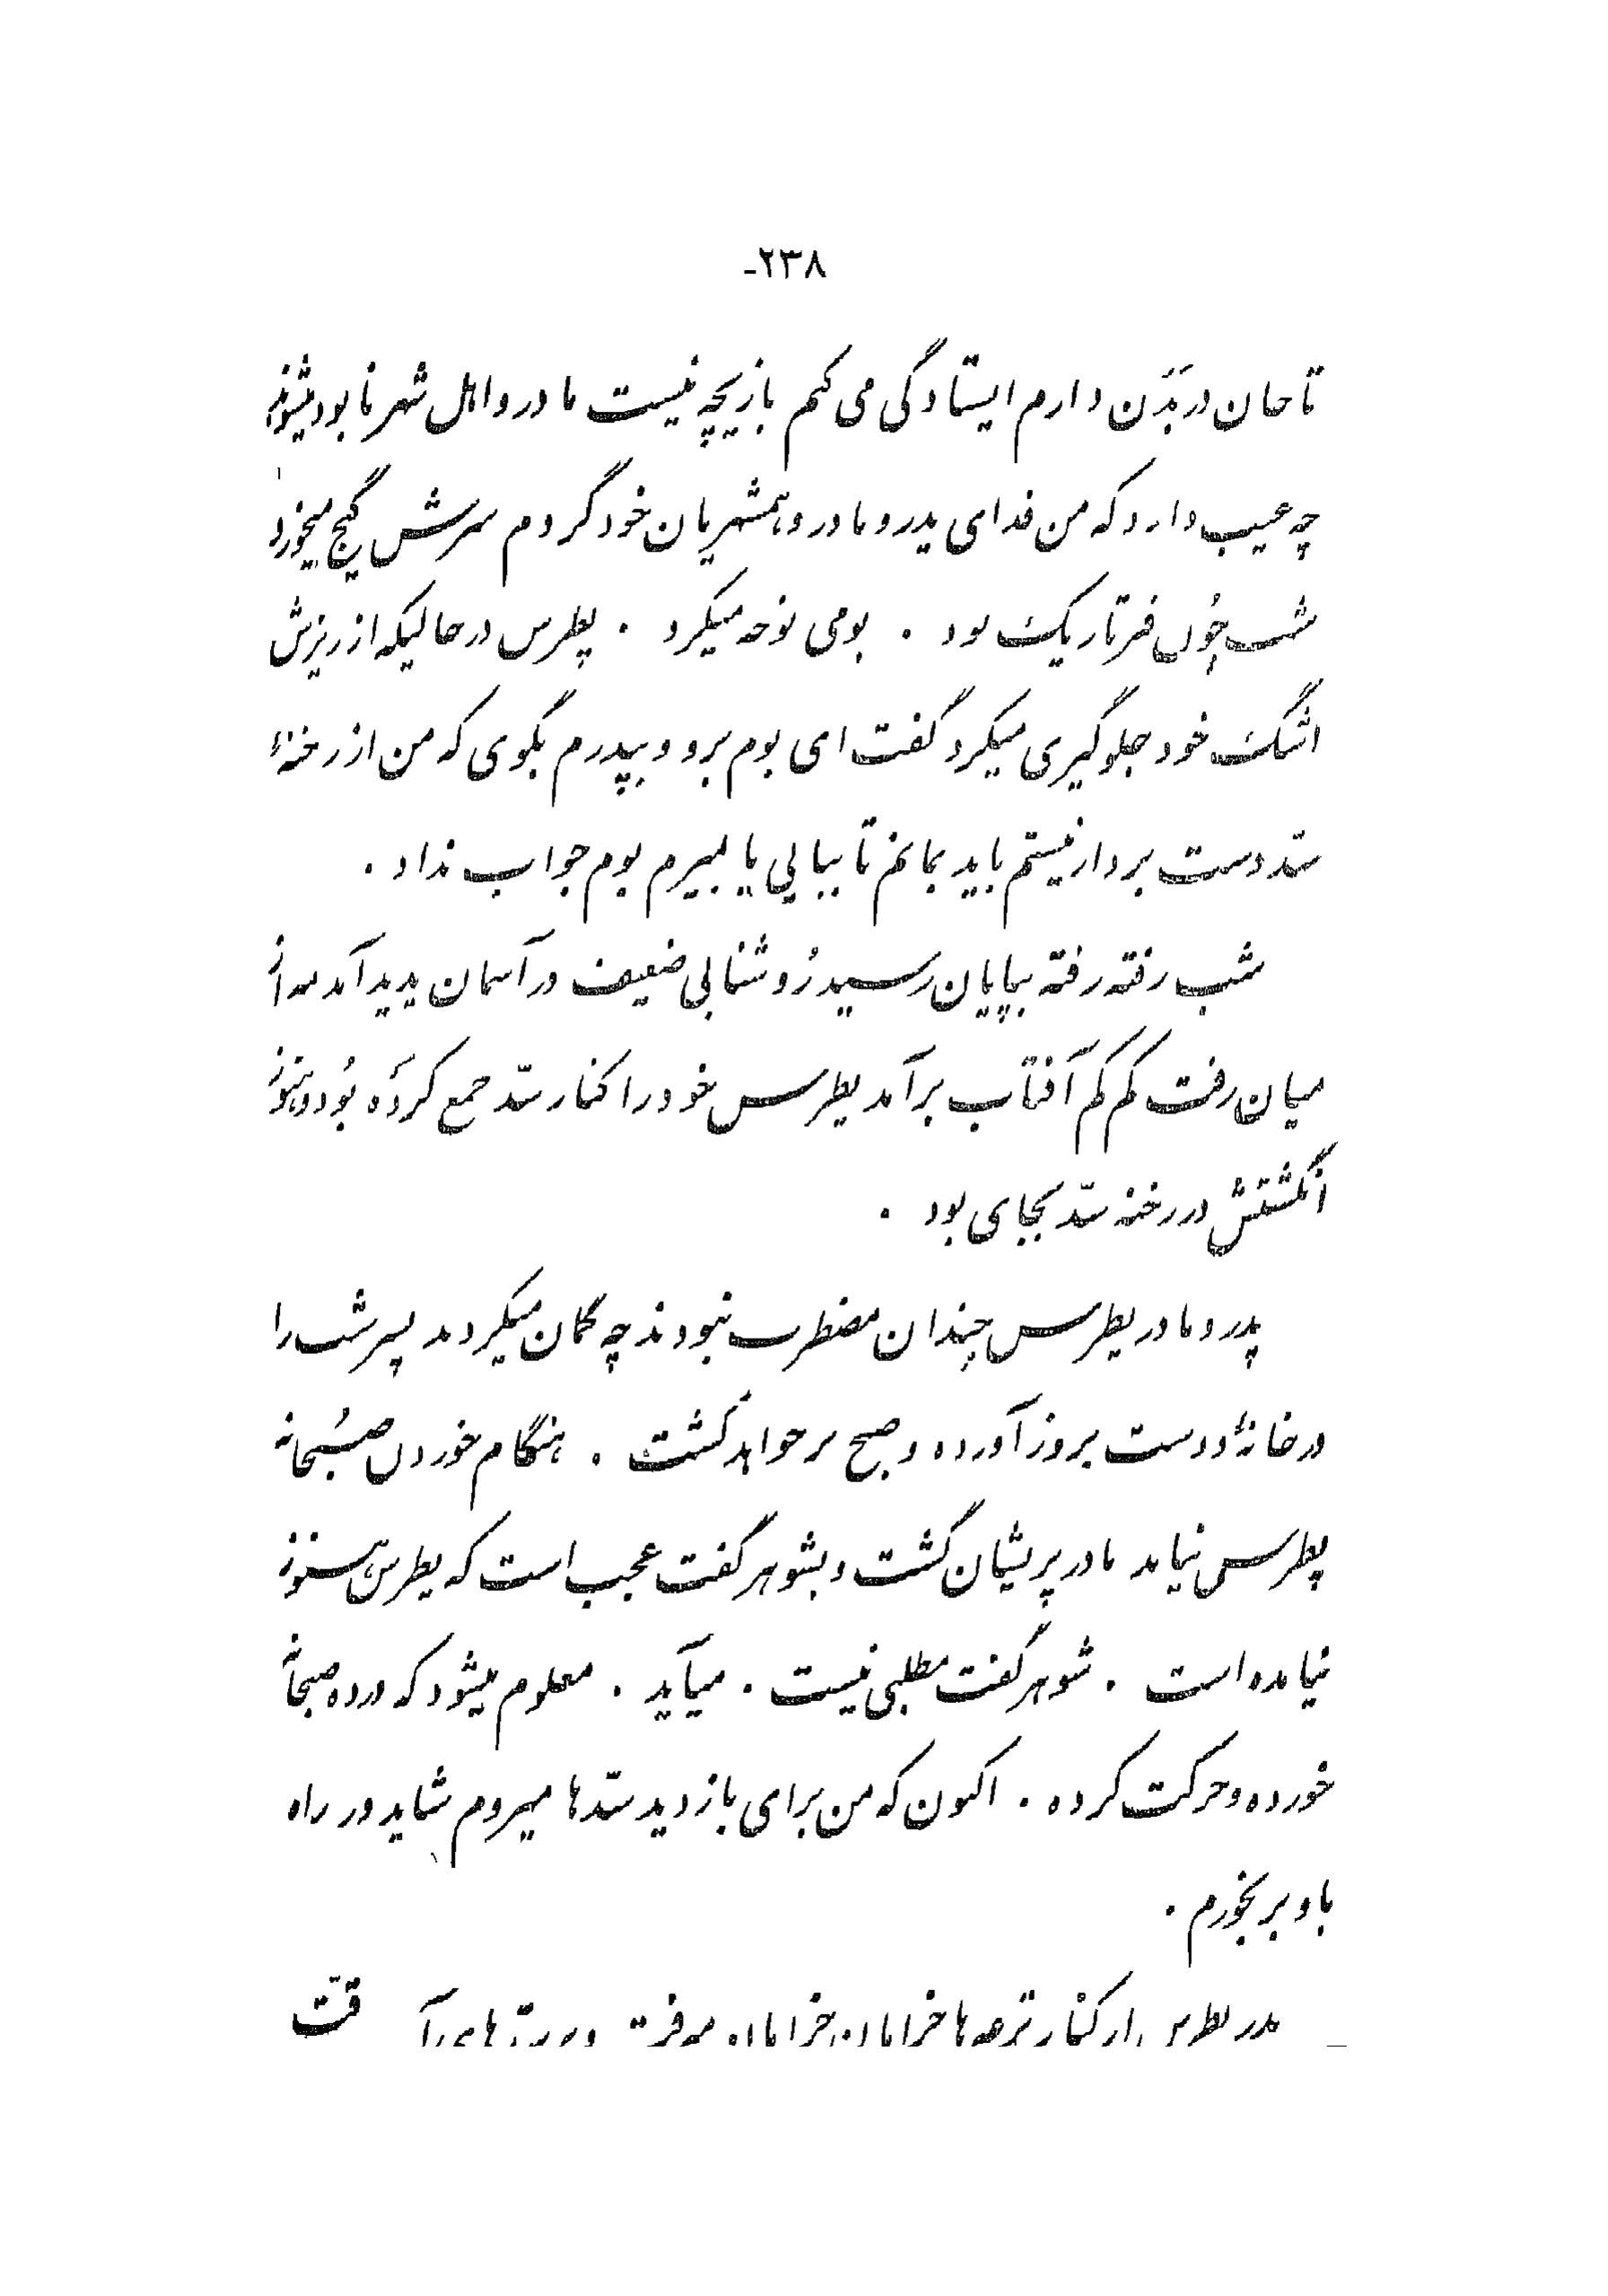 -۲۳۸
تا جان در بَدَن دارم ایستادگی می کنم بازیچه نیست مادر و اهل شهر نابود میشوند
چه عیب دارد که من فدای پدر و مادر و همشهریان خود گردم سرش گیج میخورد
شب چُون قیر تاریک بود . بومی نوحه میکرد . پطرس در حالیکه از ریزش
اشک خود جلوگیری میکرد گفت ای بوم برو و بپدرم بگوی که من از رخنهٔ
سدّ دست بردار نیستم باید بمانم تا بیایی یا بمیرم بوم جواب نداد .
شب رفته رفته بپایان رسید رُوشنایی ضعیف در آسمان پدید آمد مه از
میان رفت کم کم آفتاب برآمد پطرس خود را کنار سدّ جمع کردَه بُود و هنوز
انگشتش در رخنه سدّ بجای بود .
پدر و مادر پطرس چندان مضطرب نبودند چه گمان میکردند پسر شب را
در خانهٔ دوست بروز آورده و صبح بر خواهد گشت . هنگام خوردن صُبحانه
پطرس نیامد مادر پریشان گشت و بشوهر گفت عجب است که پطرس هنوز
نیامده است . شوهر گفت مطلبی نیست . میآید . معلوم میشود که در ده صبحانه
خورده و حرکت کرده . اکنون که من برای بازدید سدّها میروم شاید در راه
باو بر بخورم .
پدر پطرس از کنار ترعه ها خرامان خرامان میرفت و سدّهای را دقت